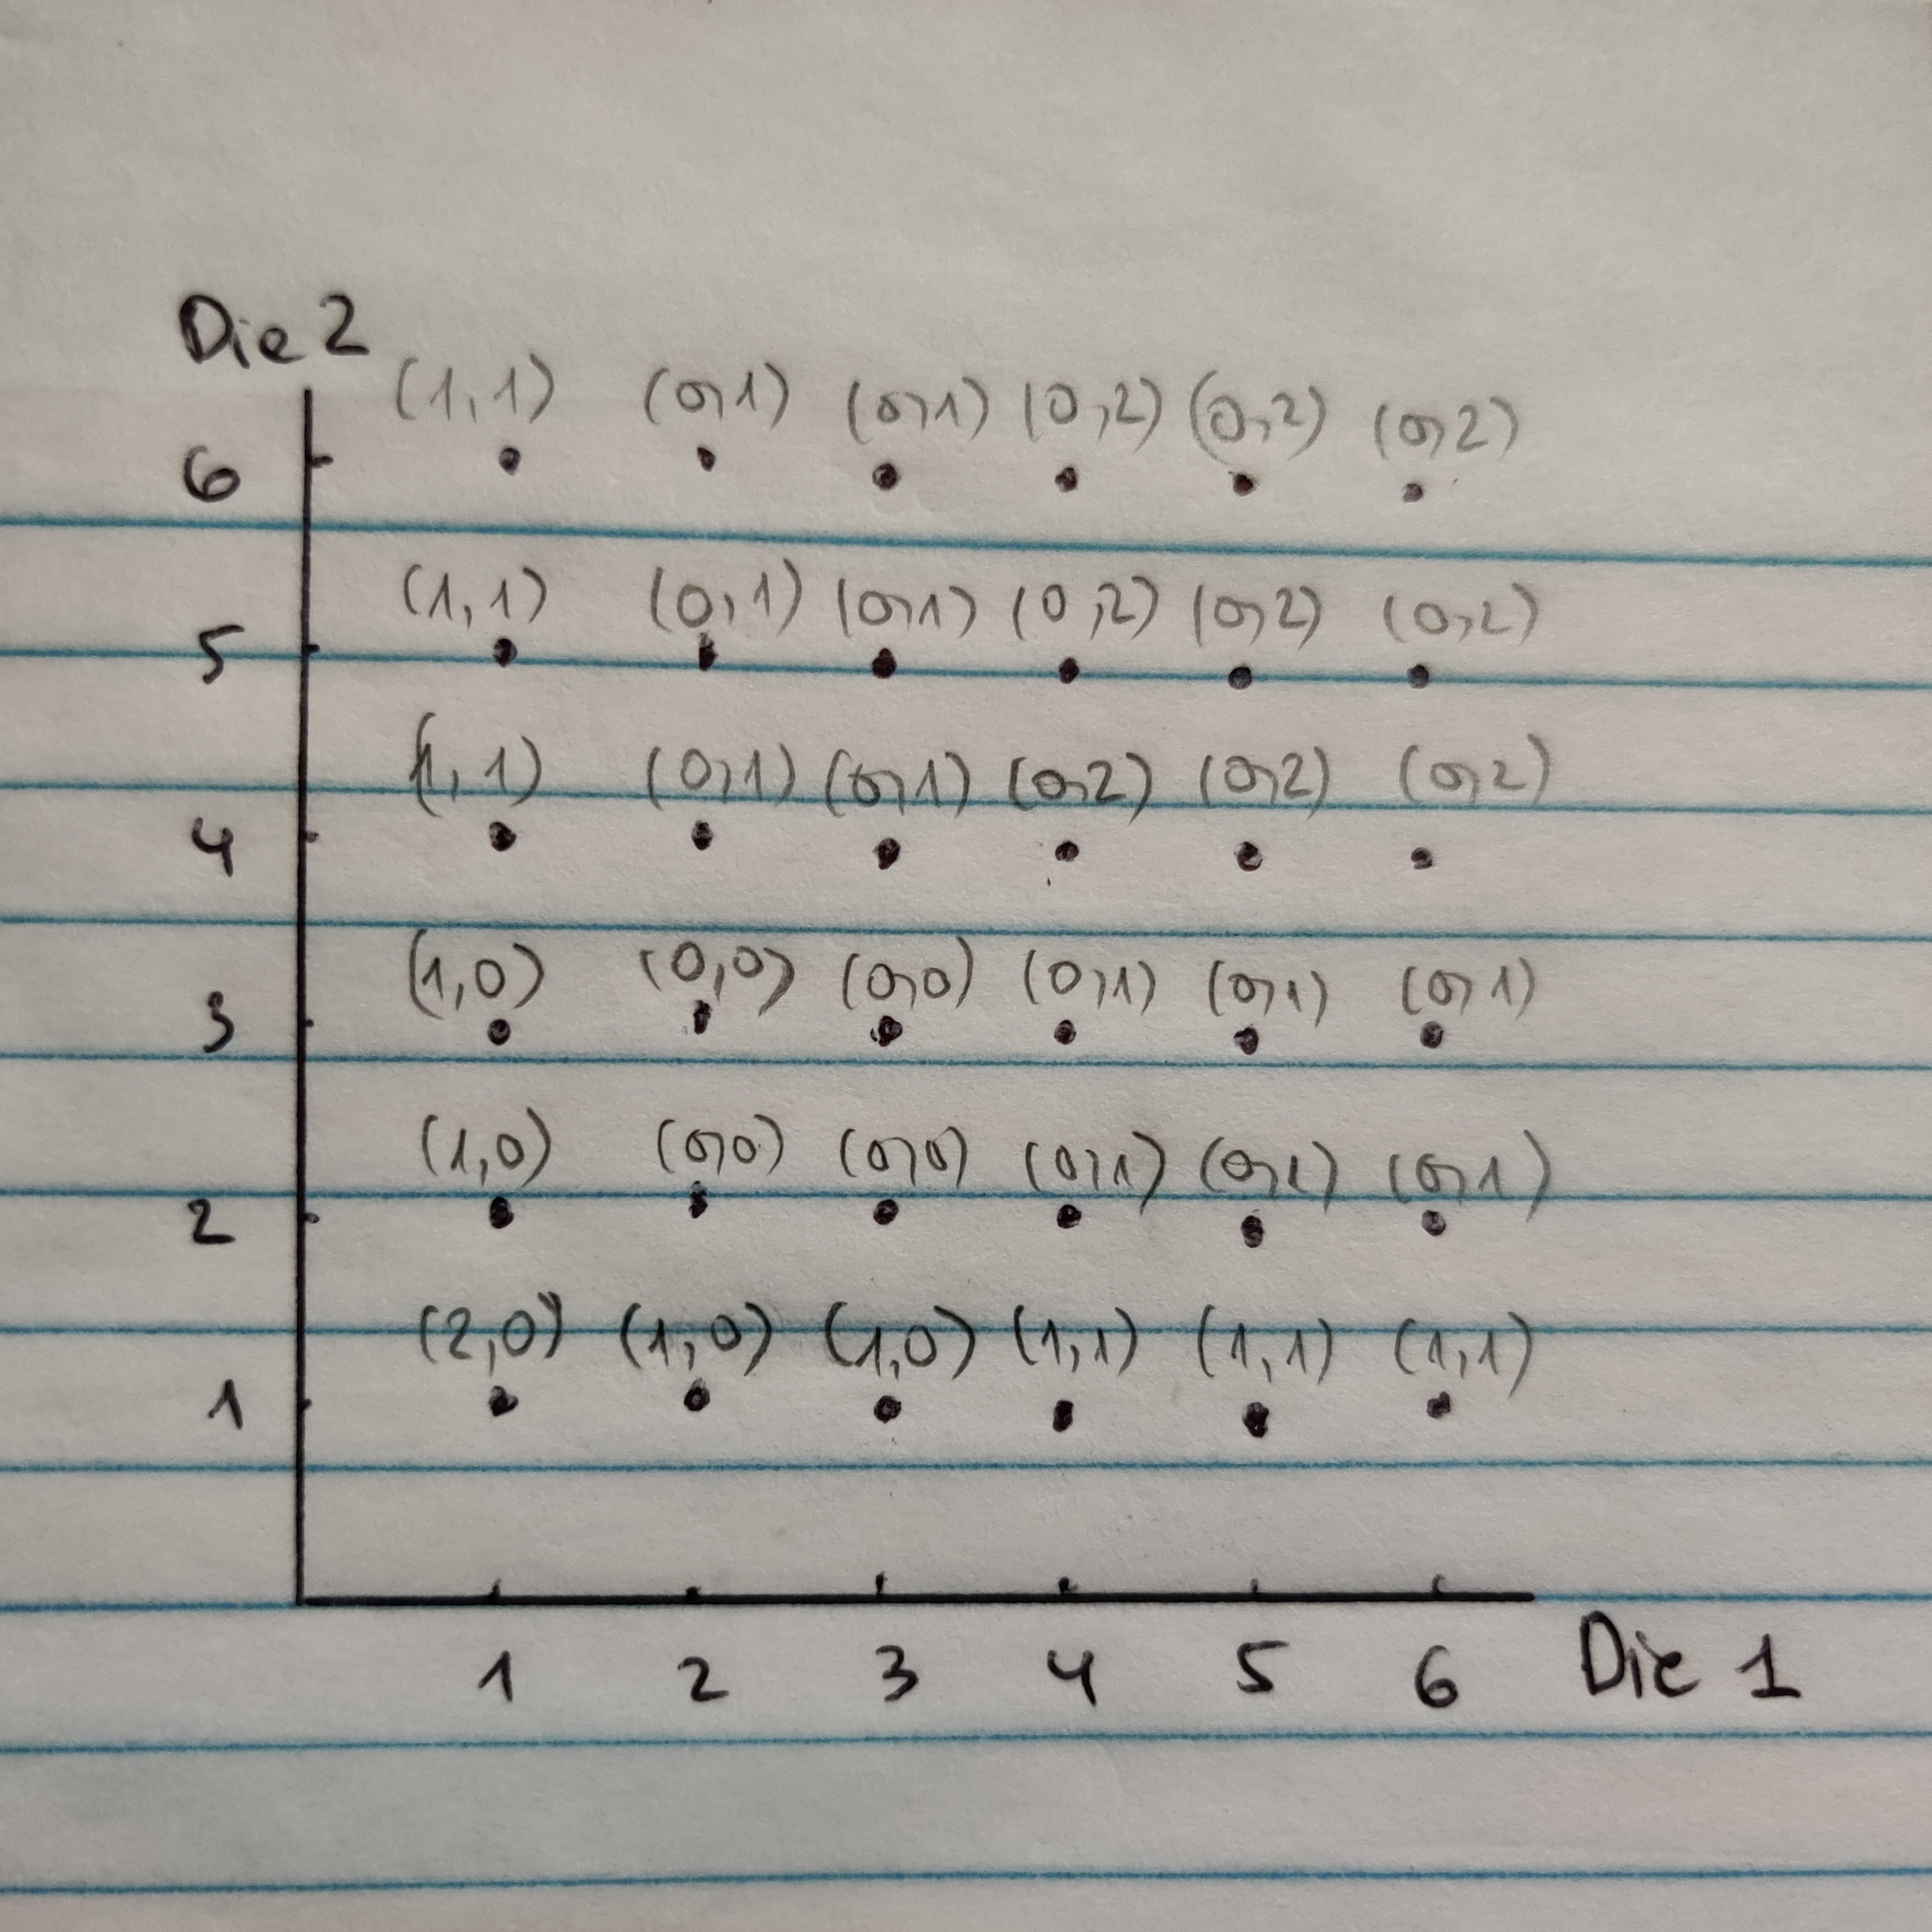 Die 2
(1,1) (0,1) (0,1) (0,2) (0,2) (0,2)
6
(1,1) (0,1) (0,1) (0,2) (0,2) (0,2)
5
(1,1) (0,1) (0,1) (0,2) (0,2) (0,2)
4
(1,0) (0,0) (0,0) (0,1) (0,1) (0,1)
3
(1,0) (0,0) (0,0) (0,1) (0,1) (0,1)
2
(2,0) (1,0) (1,0) (1,1) (1,1) (1,1)
1
1 2 3 4 5 6 Die 1